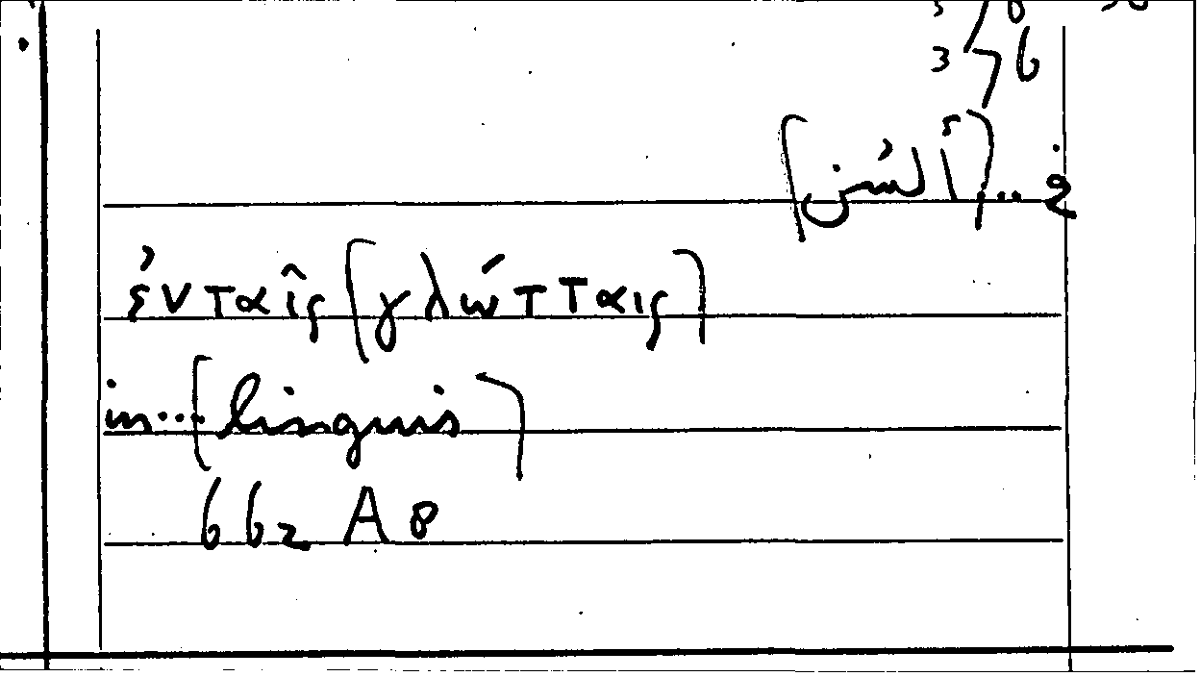 3 6
في ...[ألسُن]
ἐν ταῖς [γλώτταις]
in...[linguis]
662 A8